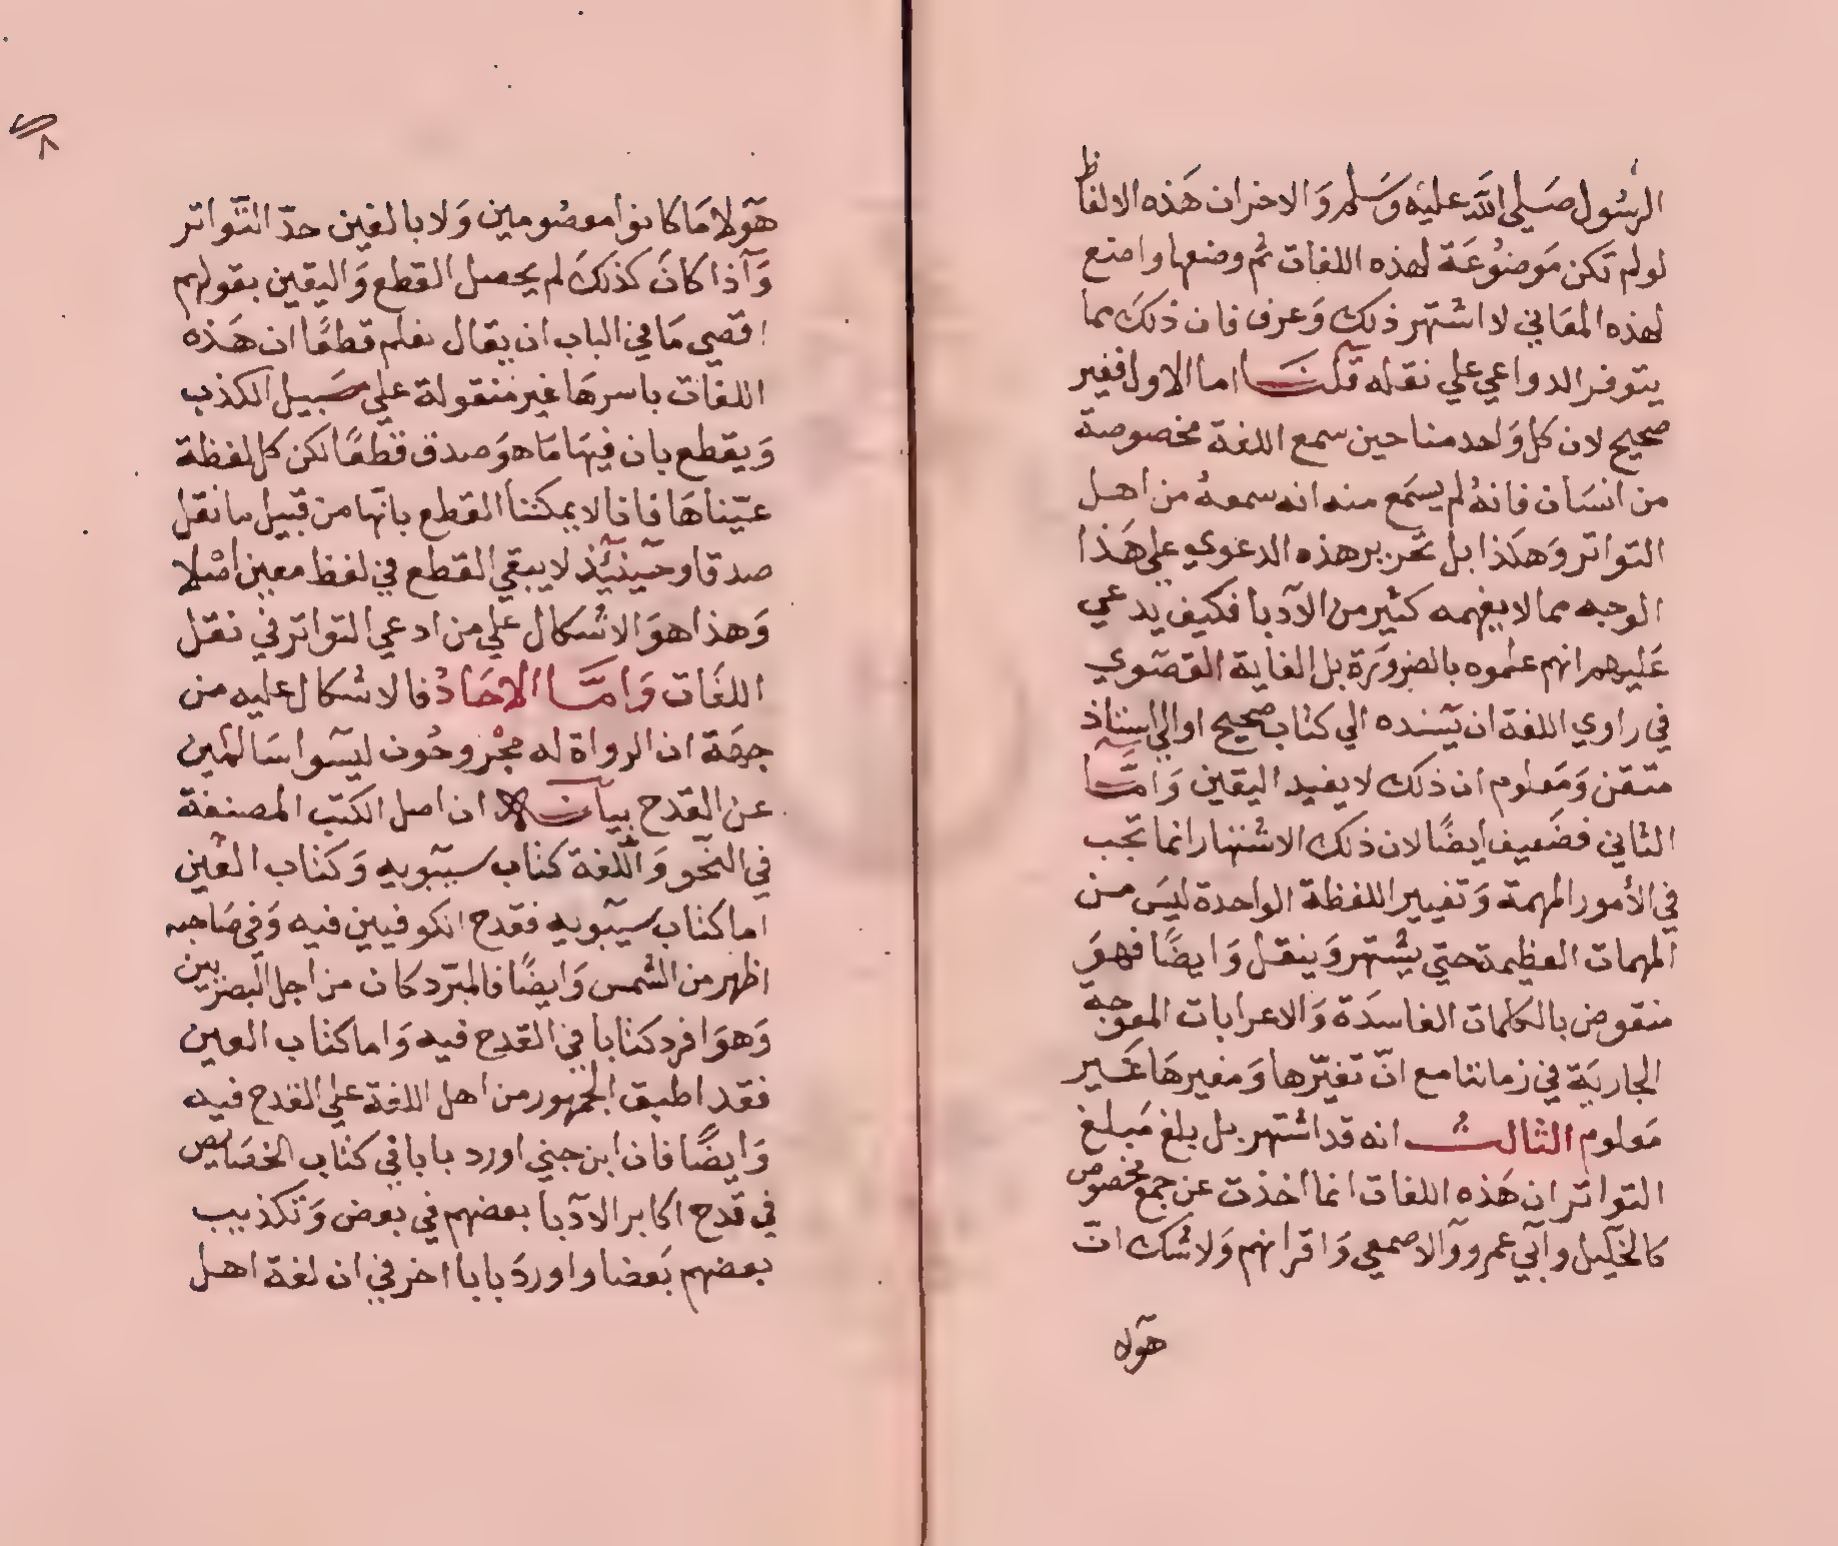 الرسُول صَلي اللَّه عليْه وَسَلم وَالاخران هَذه الالفاظ
لولم تكن مَوضوُعَة لهذه اللغات ثم وضعها واضع
لهذه المعَاني لاشتهر ذلك وَعرف فان ذلك مما
يتوفر الدواعي علي نقله قلنَا اما الاول فغير
صحيح لان كل وَاحد منا حين سمع اللغة مخصوصة
من انسَان فانهُ لم يسمَع منه انه سمعهُ من اهل
التواتر وَهكذا بل تحرير هذه الدعوي علي هَذا
الوجه مما لا يفهمه كثير من الآدبا فكيف يدعي
عَليهم انهم علموه بالضروَرة بل الغاية القصوي
في راوي اللغة ان يسنده الي كتاب صحيح او الي استاذ
متقن وَمَعلوم ان ذلك لا يفيد اليقين وَامَّا
الثاني فضَعيف ايضًا لان ذلك الاشتهار انما تجب
في الأمور المهمة وَتغيير اللفظة الواحدة ليسَ من
المهمات العظيمة حتي يشتهر وَينقل وَايضًا فهوَ
منقوض بالكلمات الفاسدَة وَالاعرابات المعوجة
الجاريَة في زماننا مع انّ تغيّرها وَمغيرهَا غَير
مَعلوم الثالث انه قد اشتهر بل بلغ مَبلغ
التواتر ان هَذه اللغات انما اخذت عن جمع مخصوص
كالخليل وابي عمرو وَالاصمعي وَاقرانهم وَلا شك انّ
هؤلا
٨
هؤلا مَا كانوا معصُومين وَلا بالغين حدّ التَّواتر
وَاذا كانَ كذلكَ لم يحصل القطع وَاليقين بقولهم
اقصي مَا في الباب ان يقال نعلم قطعًا ان هَذه
اللغات باسرهَا غير منقولة علي سَبيل الكذب
وَيقطع بان فيهَا مَا هوَ صدق قطعًا لكن كل لفظة
عيّناهَا فانا لا يمكننا القطع بانّها من قبيل ما نقل
صدقا وحينئذ لا يبقي القطع في لفظ معين اصْلا
وَهذا هوَ الاشكال علي من ادعي التواتر في نقل
اللغَات وَامَّا الاحَادُ فالاشكال عليه من
جهَة ان الرواة له مجْروحُون ليسوا سَالمين
عن القدح بيانه ان اصل الكتب المصنفة
في النحو وَاللغة كتاب سيبويه وَكتاب العين
اما كتاب سيبويه فقدح الكوفيين فيه وَفي صَاحبه
اظهر من الشمس وَايضًا فالمبرّد كان من اجل البصريين
وَهوَ افرد كتابا في القدح فيه وَاما كتاب العين
فقد اطبق الجمهور من اهل اللغة علي القدح فيه
وَايضًا فان ابن جني اورد بابا في كتاب الخصَايص
في قدح اكابر الادَبا بعضهم في بعض وَتكذيب
بعضهم بَعضا واوردَ بابا اخر في ان لغة اهل